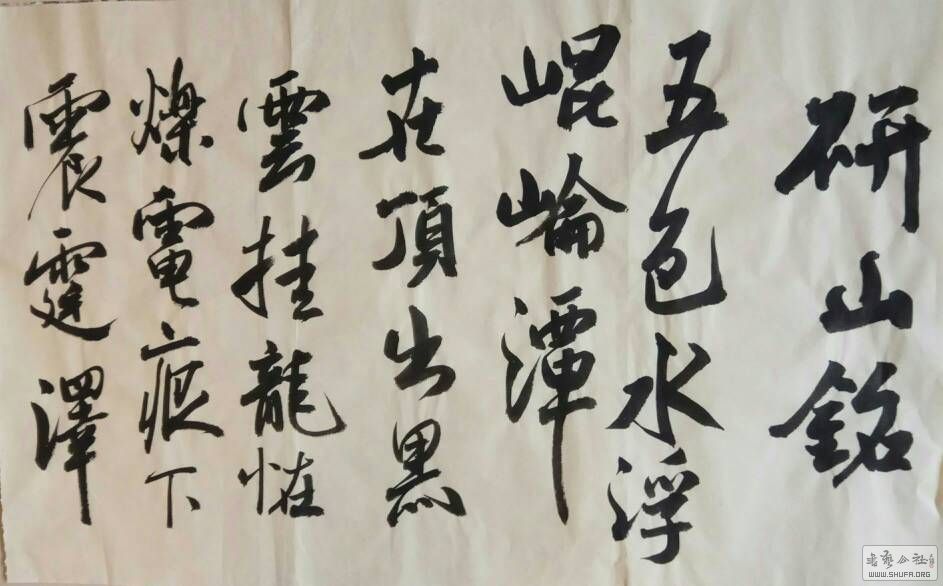 研山銘
五色水浮
崐崘潭
在頂出黑
雲挂龍怪
爍電痕下
震霆澤
书艺公社
WWW.SHUFA.ORG